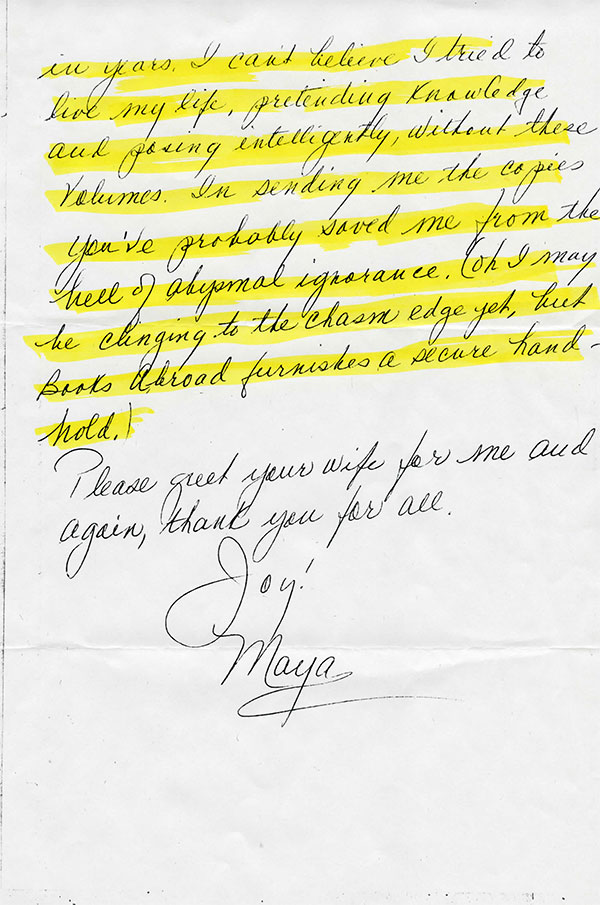 in years. I can't believe I tried to
live my life, pretending knowledge
and posing intelligently, without these
Volumes. In sending me the copies
you've probably saved me from the
hell of abysmal ignorance. (Oh I may
be clinging to the chasm edge yet, but
Books Abroad furnishes a secure hand-
hold.)
Please greet your wife for me and
again, thank you for all.
Joy!
Maya